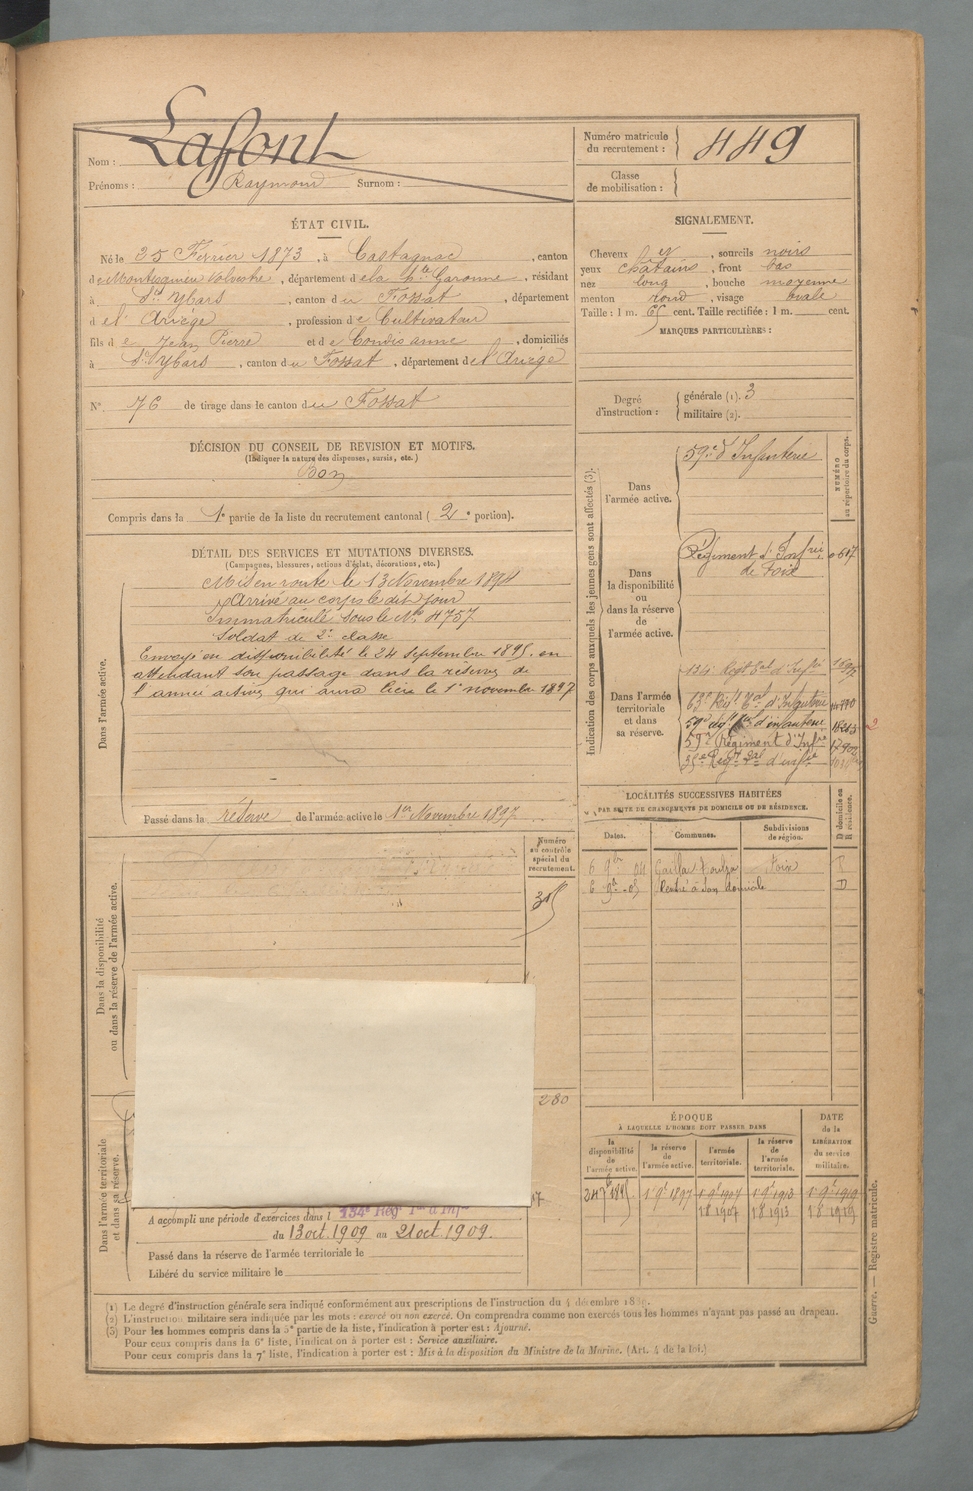 Nom : Lafont
Prénoms : Raymond Surnom :
Numéro matricule du recrutement : 449
Classe de mobilisation :
ÉTAT CIVIL.
Né le 25 Février 1873, à Castagnac, canton
de Montesquieu Volvestre, département de la Hte Garonne, résidant
à St Ybars, canton du Fossat, département
de l'Ariége, profession de Cultivateur
fils de Jean Pierre et de Condis anne, domiciliés
à St Ybars, canton du Fossat, département de l'Ariége
N° 76 de tirage dans le canton du Fossat
DÉCISION DU CONSEIL DE REVISION ET MOTIFS.
(Indiquer la nature des dispenses, sursis, etc.)
Bon
Compris dans la 1e partie de la liste du recrutement cantonal (2e portion).
DÉTAIL DES SERVICES ET MUTATIONS DIVERSES.
(Campagnes, blessures, actions d'éclat, décorations, etc.)
Dans l'armée active.
Mis en route le 13 Novembre 1894
Arrivé au corps le dit jour
Immatriculé sous le No 4757
Soldat de 2e classe
Envoyé en disponibilité le 24 septembre 1895. en
attendant son passage dans la réserve de
l'armée active qui aura lieu le 1er novembre 1897
Passé dans la réserve de l'armée active le 1er Novembre 1897
Dans la disponibilité
ou dans la réserve de l'armée active.
Numéro
au contrôle
spécial du
recrutement.
280
Dans l'armée territoriale
et dans sa réserve.
A accompli une période d'exercices dans l 134e Régt Ial d'Infie
du 13 oct. 1909 au 21 oct. 1909.
Passé dans la réserve de l'armée territoriale le
Libéré du service militaire le
SIGNALEMENT.
Cheveux et, sourcils noirs
yeux châtains, front bas
nez long, bouche moyenne
menton rond, visage ovale
Taille : 1 m. 65 cent. Taille rectifiée : 1 m. cent.
MARQUES PARTICULIÈRES :
Degré d'instruction : générale (1). 3
militaire (2).
Indication des corps auxquels les jeunes gens sont affectés (3).
NUMÉRO
au répertoire du corps.
Dans
l'armée active.
59e d'Infanterie
Dans
la disponibilité
ou
dans la réserve
de
l'armée active.
Régiment d'Infrie 0607
de Foix
Dans l'armée
territoriale
et dans
sa réserve.
134e Regt Eal d'Infie
63e Regt Eal d'Infanterie
59e d'infanterie 2
59e Régiment d'Infie
35e Regt Eal d'infie
LOCALITÉS SUCCESSIVES HABITÉES
PAR SUITE DE CHANGEMENTS DE DOMICILE OU DE RÉSIDENCE.
Dates. Communes. Subdivisions de région. D domicile ou R résidence.
6 9bre 04 Gaillac Toulza Foix R
6 9b. 05 Rentré à son domicile D
ÉPOQUE
À LAQUELLE L'HOMME DOIT PASSER DANS
la disponibilité de l'armée active. la réserve de l'armée active. l'armée territoriale. la réserve de l'armée territoriale.
DATE de la LIBÉRATION du service militaire.
24 7bre 1895 1er 9e 1897 1er 9e 1907 1er 9e 1913 1er 9e 1919
1 8 1907 1 8 1913 1 8 1919
(1) Le degré d'instruction générale sera indiqué conformément aux prescriptions de l'instruction du 4 décembre 1889.
(2) L'instruction militaire sera indiquée par les mots : exercé ou non exercé. On comprendra comme non exercés tous les hommes n'ayant pas passé au drapeau.
(3) Pour les hommes compris dans la 5e partie de la liste, l'indication à porter est : Ajourné.
Pour ceux compris dans la 6e liste, l'indication à porter est : Service auxiliaire.
Pour ceux compris dans la 7e liste, l'indication à porter est : Mis à la disposition du Ministre de la Marine. (Art. 4 de la loi.)
Guerre. — Registre matricule.